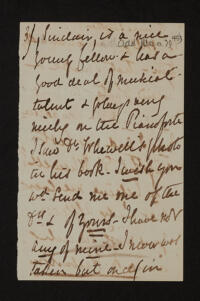 Sinclair, is a nice
young fellow & has a
good deal of musical
talent & plays very
nicely on the Pianoforte
I saw Dr Whewell's photo
in his book. I wish you
wd Send me one of the
Drs & of Yours. I have not
any of mine. I never was
taken but once in